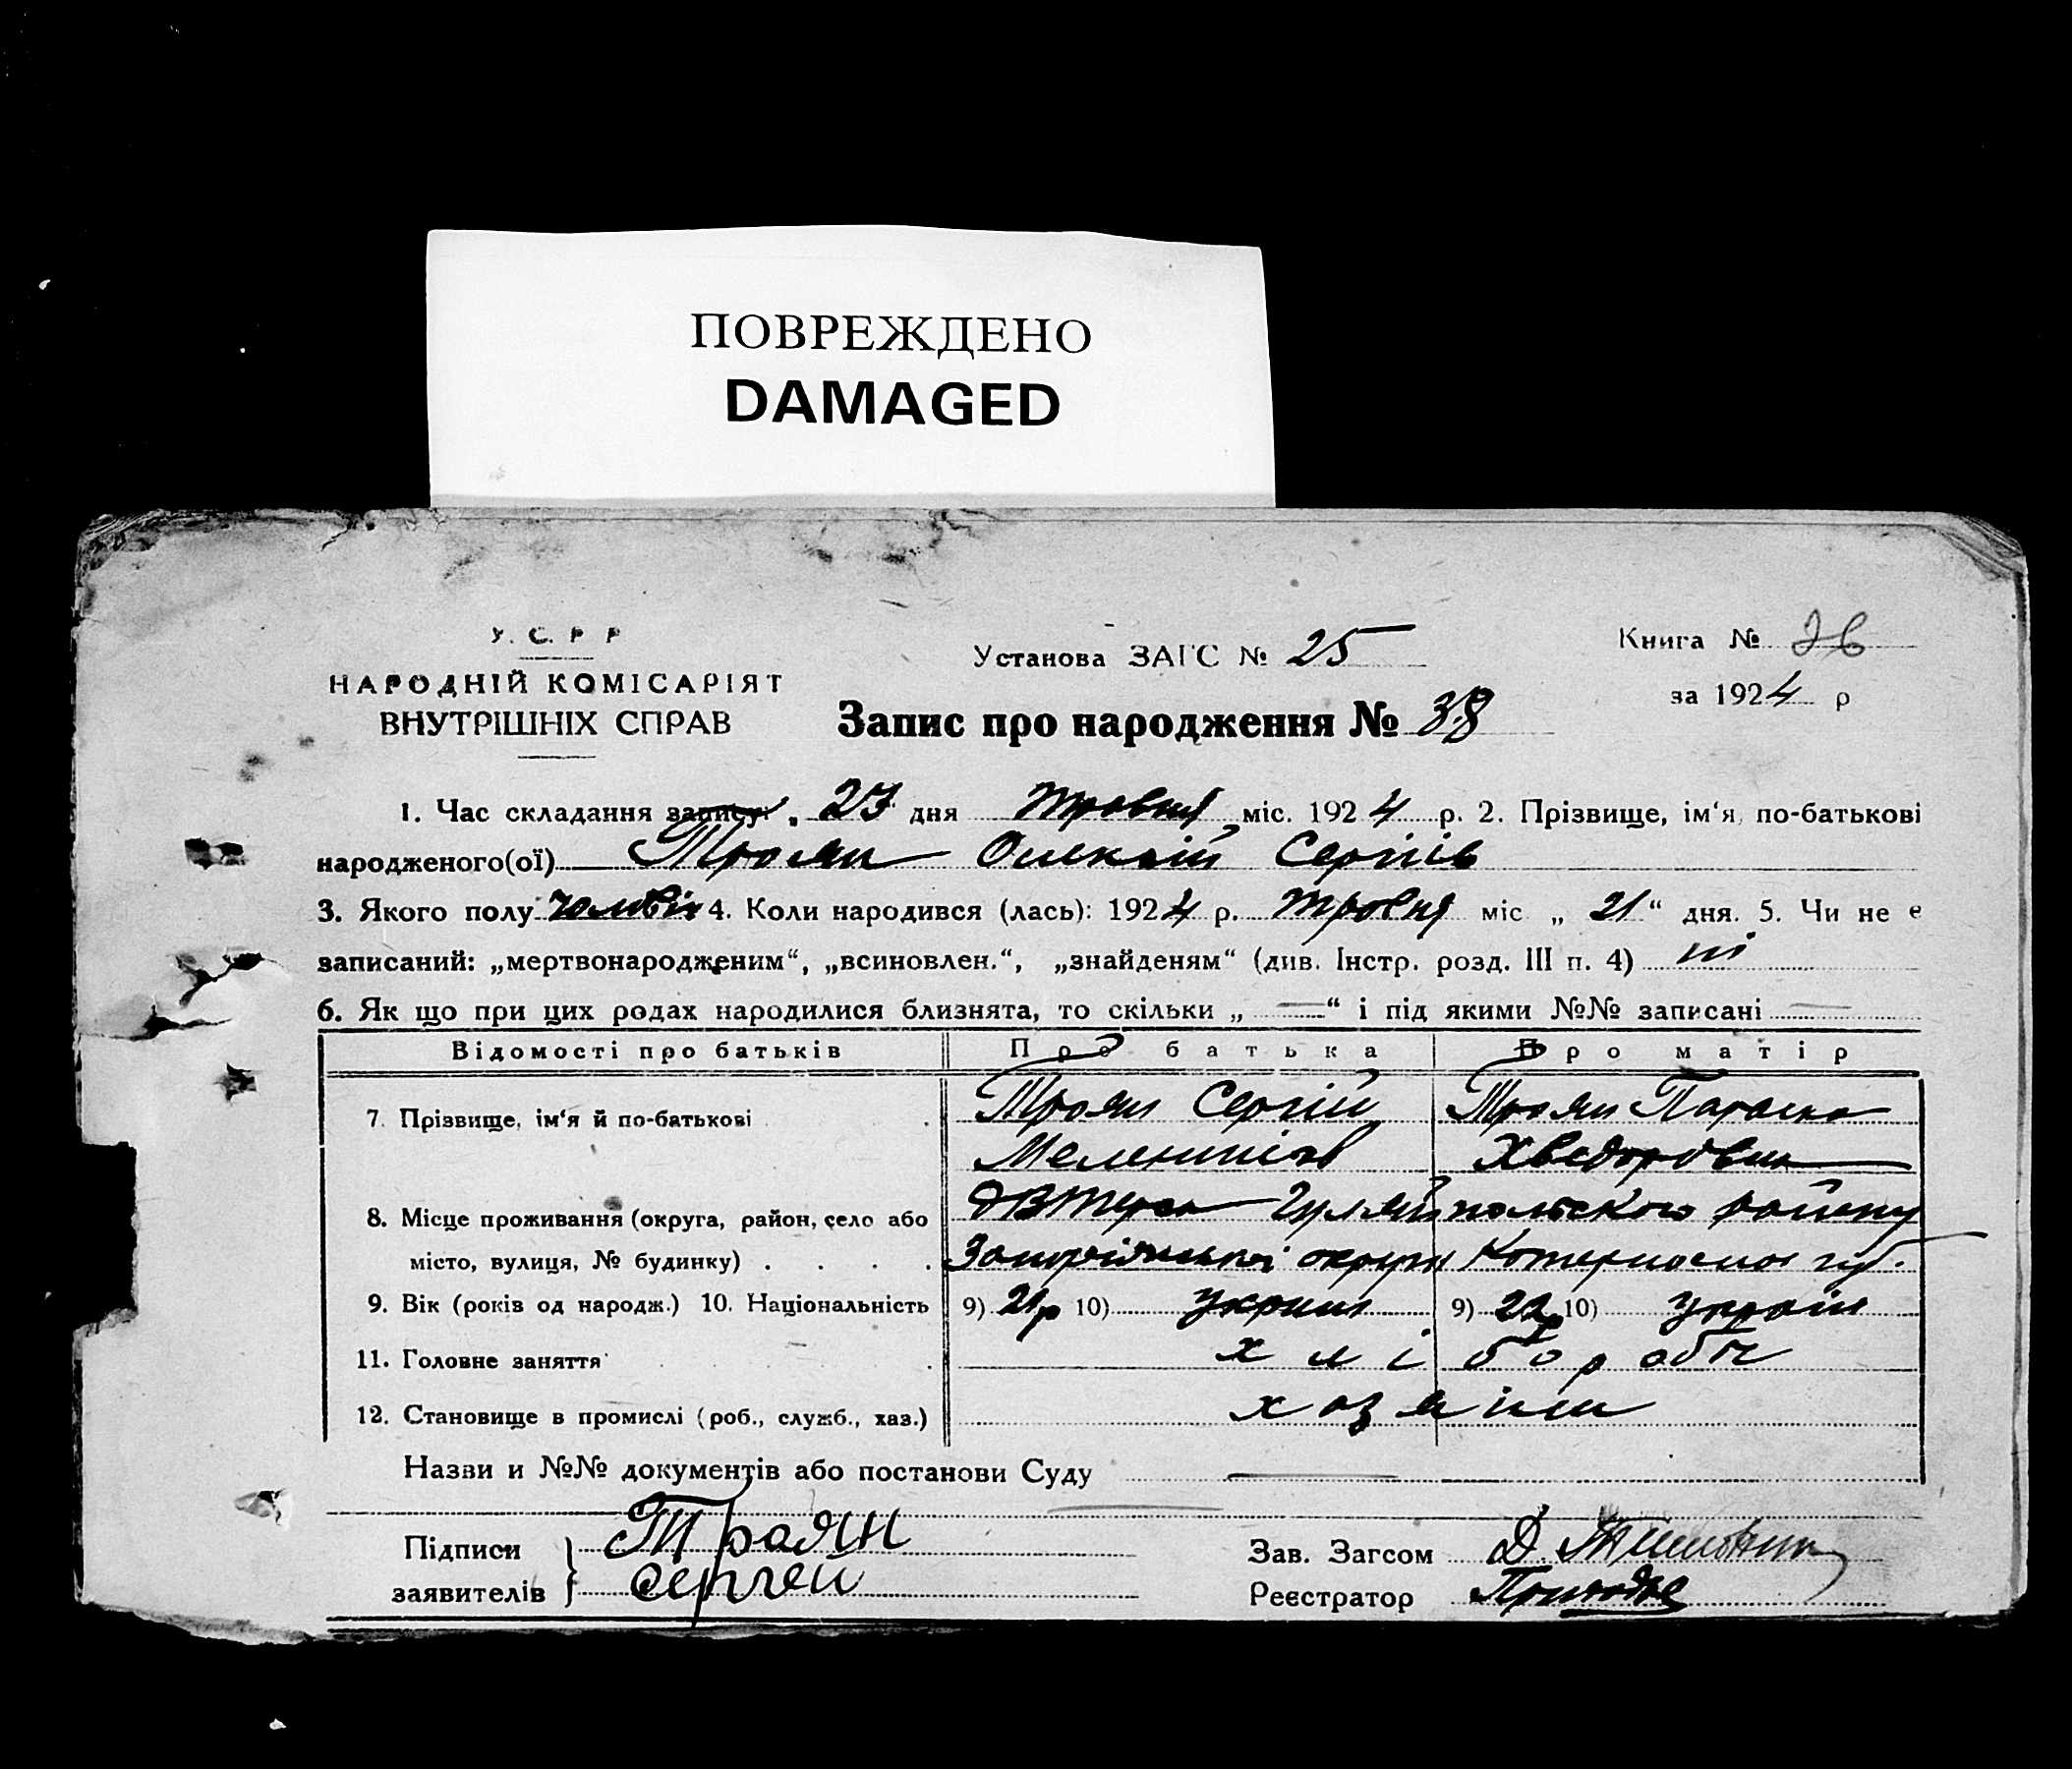 ПОВРЕЖДЕНО
DAMAGED
У. С. Р Р
НАРОДНІЙ КОМІСАРІЯТ
ВНУТРІШНІХ СПРАВ
Установа ЗАГС № 25
Запис про народження № 38
Книга № 26
за 1924 р
1. Час складання запису: „ 27 дня травня міс. 1924 р. 2. Прізвище, ім‘я, по-батькові
народженого(ої) Троян Олексій Сергіїв
3. Якого полу чоловік 4. Коли народився (лась): 1924 р. травня міс „ 21 “ дня. 5. Чи не є
записаний: „мертвонародженим“, „всиновлен.“, „знайденям“ (див. Інстр. розд. III п. 4) ні
6. Як що при цих родах народилися близнята, то скільки „ — “ і під якими №№ записані —
Відомості про батьків Про батька Про матір
7. Прізвище, ім‘я й по-батькові Троян Сергій Троян Параска
Хведоровна
8. Місце проживання (округа, район, село або Гуляйпольского району
місто, вулиця, № будинку) . . . . Запорізької округи губ.
9. Вік (років од народж.) 10. Національність 9) 21р 10) 9) 22р 10)
11. Головне заняття хлібороби
12. Становище в промислі (роб., служб., хаз.) хозяіни
Назви и №№ документів або постанови Суду —
Підписи Траян
заявителів Сергей
Зав. Загсом Д.
Реєстратор